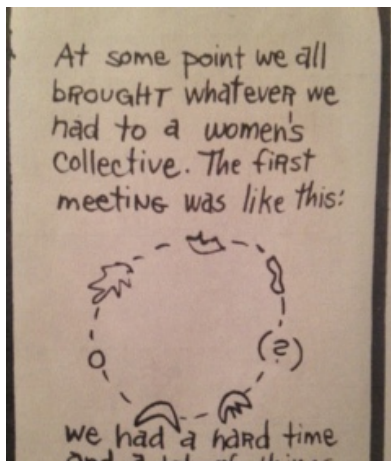 At some point we all
bROUGHT whatever we
had to a women's
collective. The fiRst
meetiNG was like this:
(?)
we had a haRd time
and a lot of things